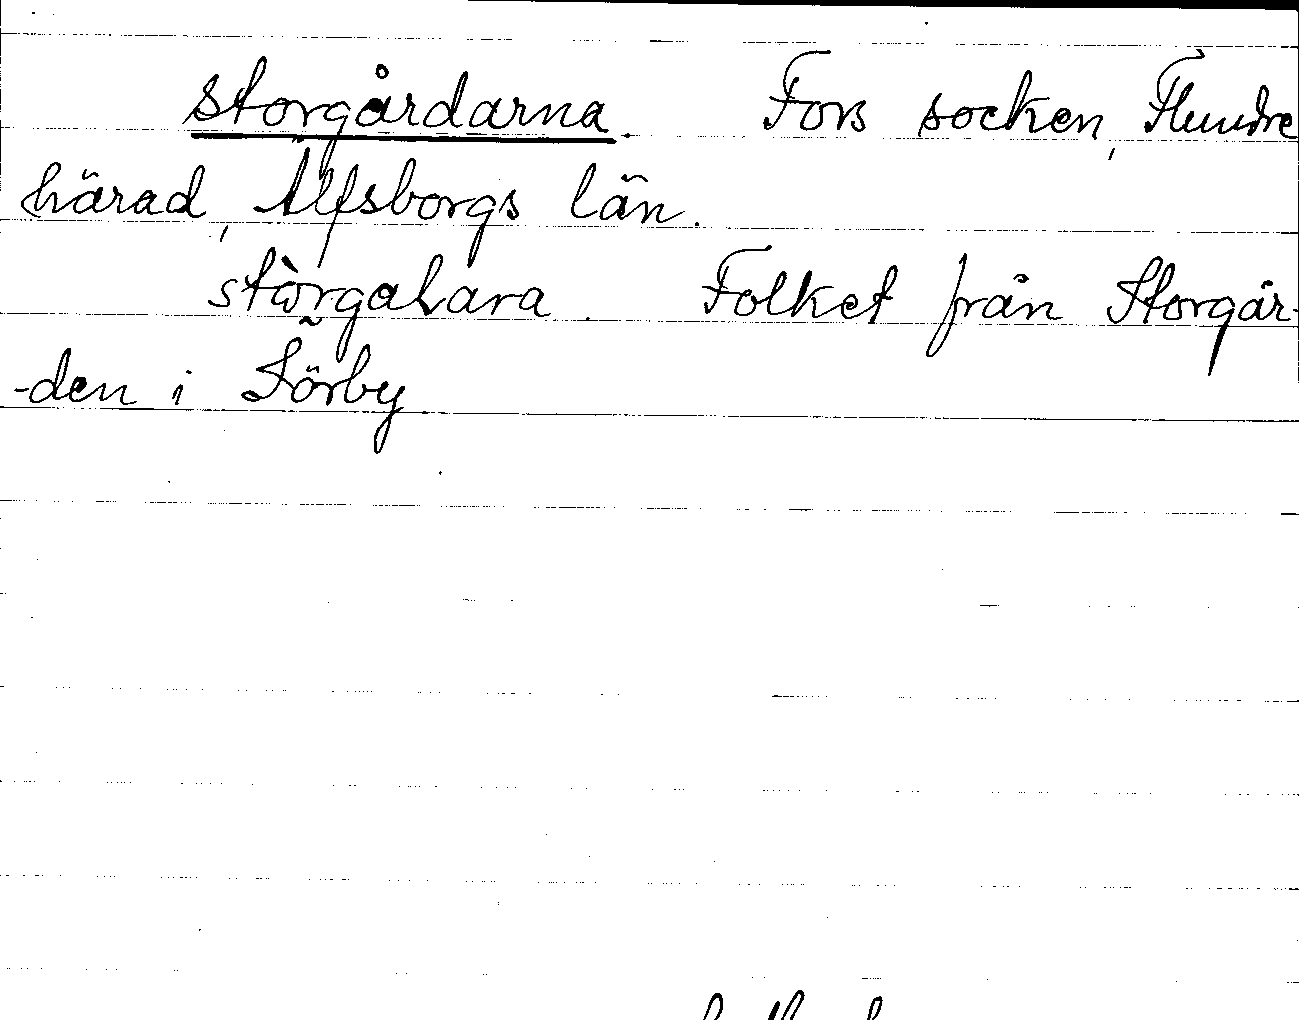 storgårdarna. Fors socken, Flundre
härad, Älfsborgs län.
stòrgaLara. Folket från Storgår-
-den i Sörby